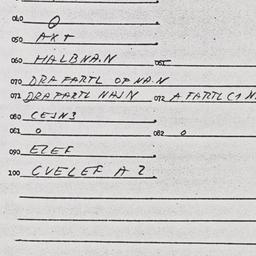 040 0
050 AXT
060 HALBNA.N 061
070 DRA FARTL OP NA.N
071 DRAFARTL NAIN 072 A FARTL (1 N
080 CEINS
081 0 082 0
090 EZEF
100 CVELEF A 2